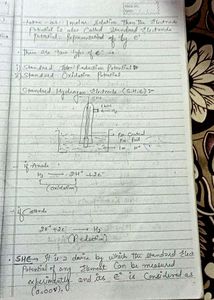 1 molar Solution Then the Electrode
Potential is also Called Standard Electrode
Potential. Representation by E°.
There are two type of E°
1) Standard Reduction Potential
2) Standard Oxidation Potential
Standard Hydrogen Electrode (S.H.E)
if Anode
H2 → 2H+ +2e-
(oxidation)
if Cathode
2H+ +2e- → H2
(Reduction)
SHE → It is a device by which the standard Elect
Potential of any Element Can be measured
experimentally and its E° is Considered as
(0.00V).